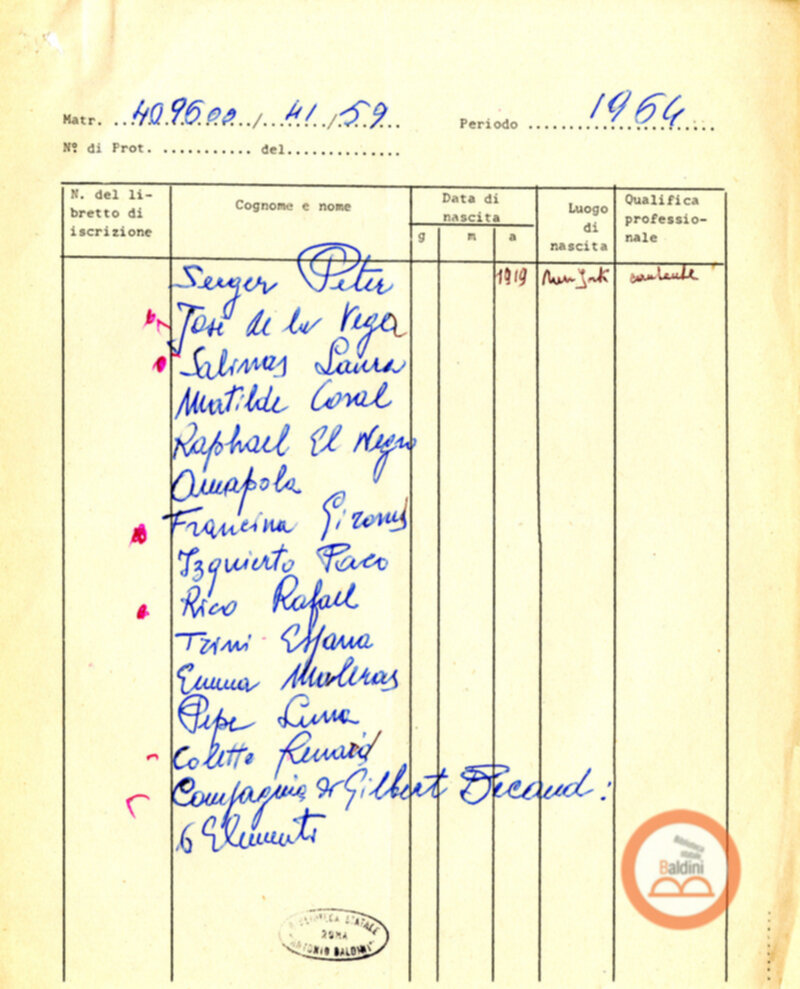 Matr. ...409600../..41../.59... Periodo ......1964......
Nº di Prot. ........... del..............
N. del li-
bretto di
iscrizione
Cognome e nome
Data di
nascita
g m a
Luogo
di
nascita
Qualifica
professio-
nale
Seeger Peter 1919 New York cantante
José de la Vega
Salinas Laura
Matilde Coral
Raphael El Negro
Amapola
Francina Girones
Izquierto Paco
Rico Rafael
Trini España
Emma Maleras
Pepe Luna
Colette Renard
Compagnia di Gilbert Becaud:
6 Elementi
BIBLIOTECA STATALE
ROMA
"ANTONIO BALDINI"
Biblioteca
statale
Baldini